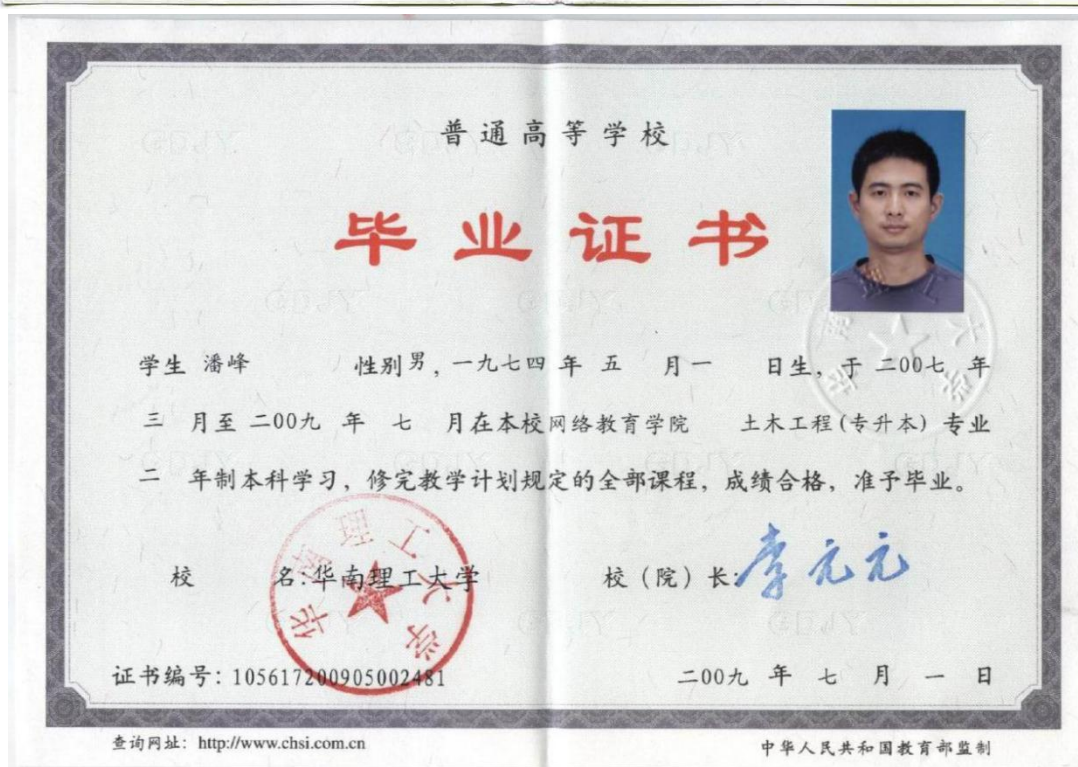 普通高等学校
毕业证书
学生 潘峰 性别男，一九七四 年 五 月一 日生，于 二00七 年
三 月至 二00九 年 七 月在本校网络教育学院 土木工程(专升本) 专业
二 年制本科学习，修完教学计划规定的全部课程，成绩合格，准予毕业。
校 名:华南理工大学 校（院）长:李元元
华南理工大学
证书编号：105617200905002481 二00九 年 七 月 一 日
查询网址：http://www.chsi.com.cn 中华人民共和国教育部监制